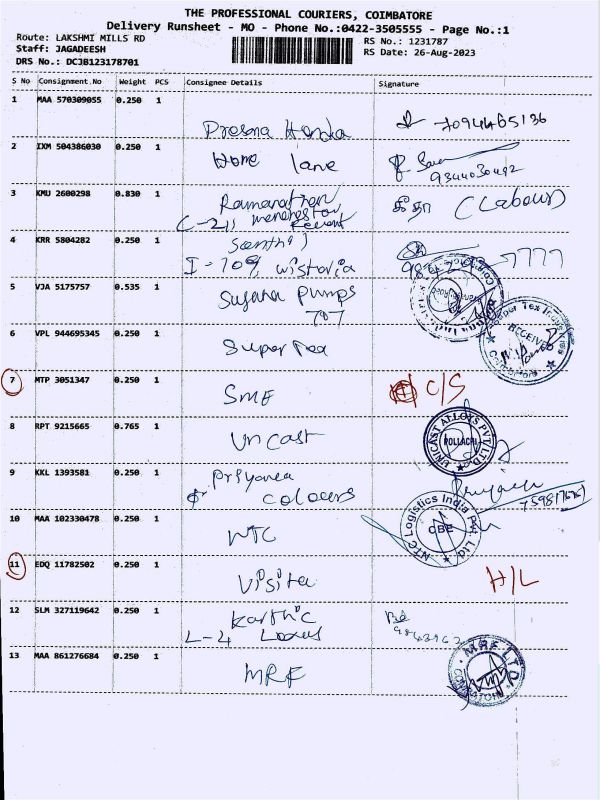 THE PROFESSIONAL COURIERS, COIMBATORE
Delivery Runsheet - MO - Phone No.:0422-3505555 - Page No.:1
Route: LAKSHMI MILLS RD
RS No.: 1231787
Staff: JAGADEESH
RS Date: 26-Aug-2023
DRS No.: DCJB123178701
S No Consignment.No Weight PCS Consignee Details Signature
1 MAA 570309055 0.250 1
Honda 7094465136
2 IXM 504386030 0.250 1
Home lane
9344030492
3 KMU 2600298 0.830 1
Ramanathan கீதா (Labour)
C-211
4 KRR 5804282 0.250 1
Santhi
I-709, wistoria 7777
5 VJA 5175757 0.535 1
Sugana Pumps
787
6 VPL 944695345 0.250 1
Super Tex
Super Tex Industries
RECEIVED
Coimbatore
7 MTP 3051347 0.250 1
SME C/S
8 RPT 9215665 0.765 1
Unicast
UNICAST ALLOYS PVT LTD
POLLACHI
9 KKL 1393581 0.250 1
Priyanea
colours
10 MAA 102330478 0.250 1
NTC
NTC Logistics India Pvt. Ltd
CBE
11 EDQ 11782502 0.250 1
Visita H/L
12 SLM 327119642 0.250 1
Karthic
L-4 Lotus
13 MAA 861276684 0.250 1
MRF
MRF LTD